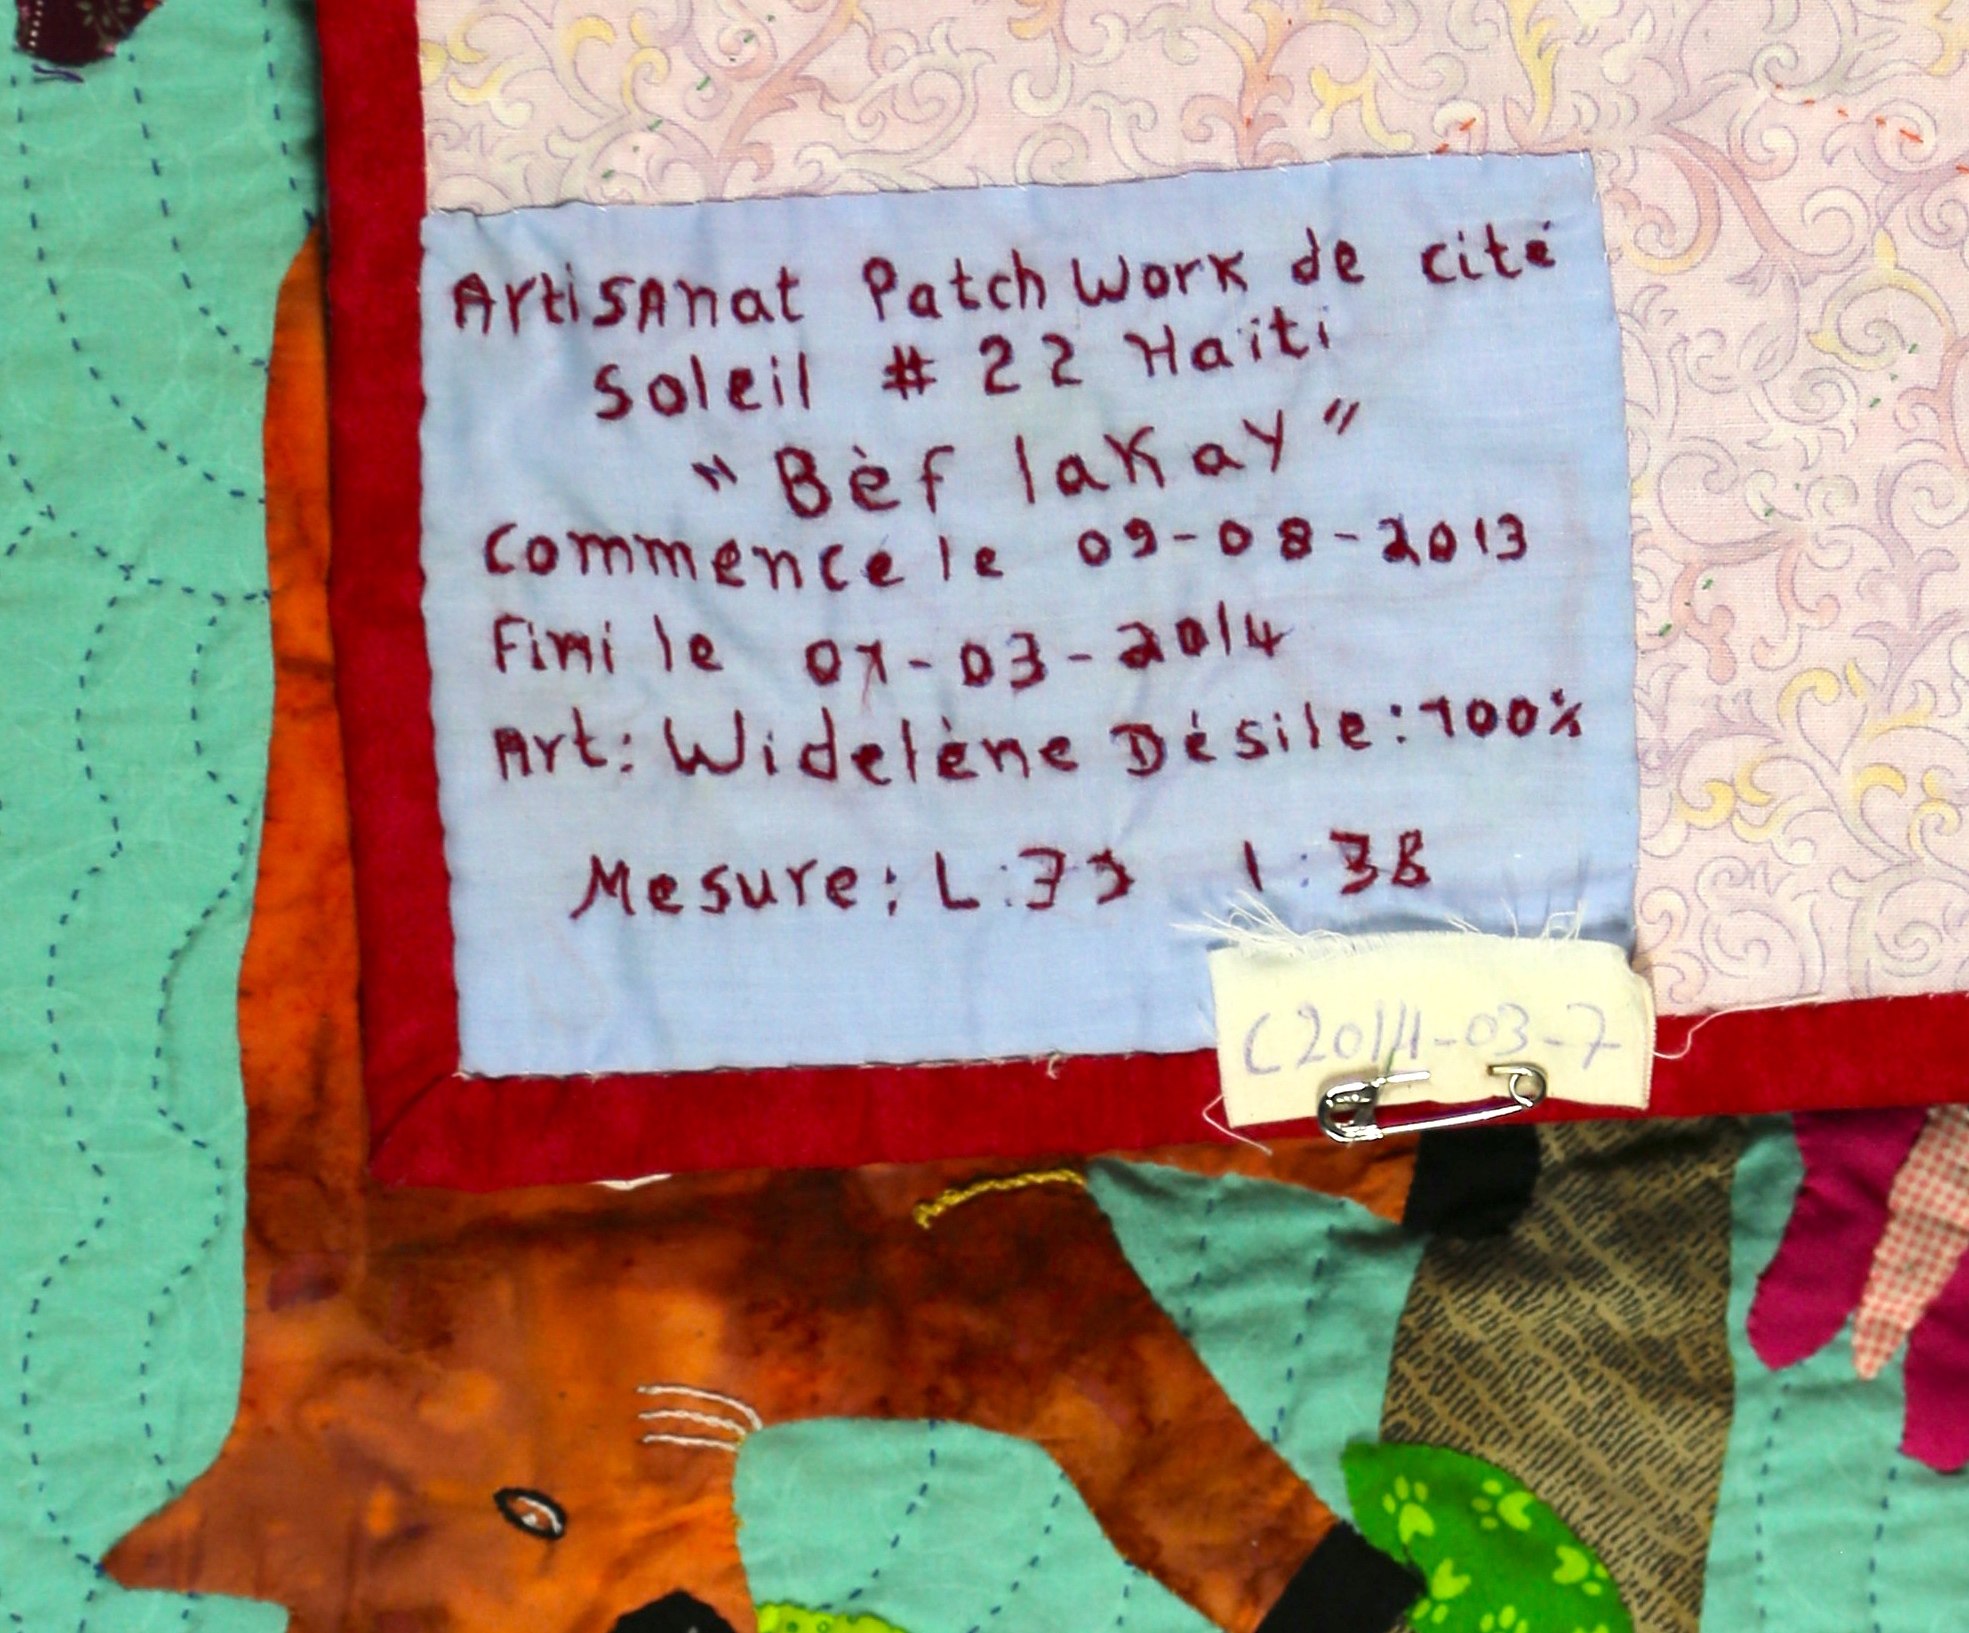 Artisanat Patch Work de cité
Soleil # 22 Haïti
"Bèf laKay"
Commencé le 09-08-2013
Fini le 07-03-2014
Art: Widelène Désile: 100%
Mesure: L: l: 38
C2014-03-7